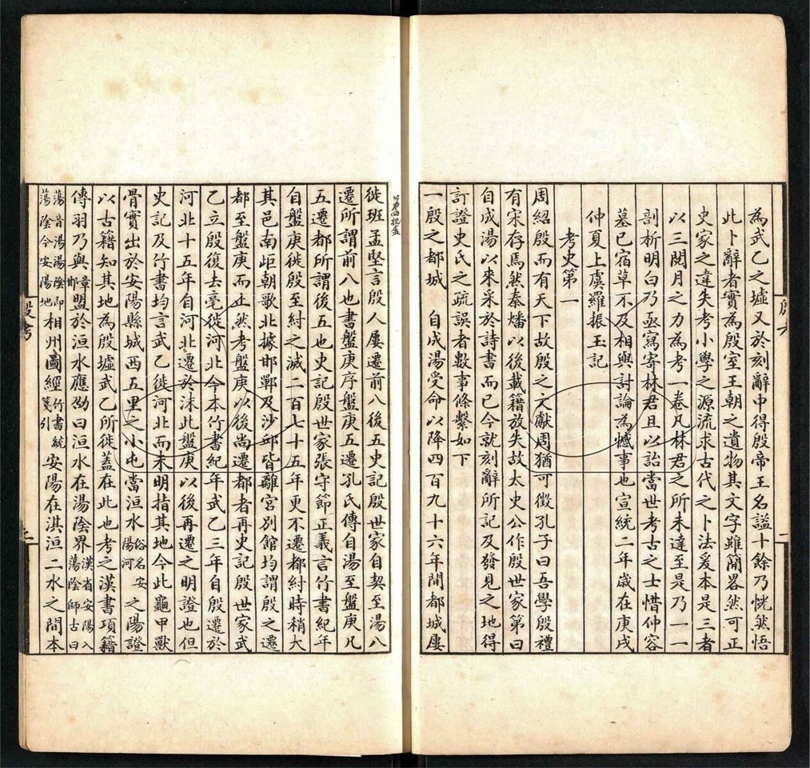 為武乙之墟又於刻辭中得殷帝王名謚十餘乃恍然悟
此卜辭者實為殷室王朝之遺物其文字雖簡畧然可正
史家之違失考小學之源流求古代之卜法爰本是三者
以三閱月之力為考一卷凡林君之所未達至是乃一一
剖析明白乃亟寫寄林君且以詒當世考古之士惜仲容
墓已宿草不及相與討論為憾事也宣統二年歲在庚戌
仲夏上虞羅振玉記
考史第一
周紹殷而有天下故殷之文獻周猶可徵孔子曰吾學殷禮
有宋存焉然秦燔以後載籍放失故太史公作殷世家第曰
自成湯以來采於詩書而已今就刻辭所記及發見之地得
訂證史氏之疏誤者數事條繫如下
一殷之都城 自成湯受命以降四百九十六年間都城屢
徙班孟堅言殷人屢遷前八後五史記殷世家自契至湯八
遷所謂前八也書盤庚序盤庚五遷孔氏傳自湯至盤庚凡
五遷都所謂後五也史記殷世家張守節正義言竹書紀年
自盤庚徙殷至紂之滅二百七十五年更不遷都紂時稍大
其邑南歫朝歌北據邯鄲及沙邱皆離宮別館均謂殷之遷
都至盤庚而止然考盤庚以後尚遷都者再史記殷世家武
乙立殷復去亳徙河北今本竹書紀年武乙三年自殷遷於
河北十五年自河北遷於沬此盤庚以後再遷之明證也但
史記及竹書均言武乙徙河北而未明指其地今此龜甲獸
骨實出於安陽縣城西五里之小屯當洹水俗名安陽河之陽證
以古籍知其地為殷墟武乙所徙蓋在此也考之漢書項籍
傳羽乃與章邯盟於洹水應劭曰洹水在湯陰界漢省安陽入蕩陰師古曰
蕩音湯湯陰即蕩陰今安陽地相州圖經竹書統箋引安陽在淇洹二水之間本
殷考